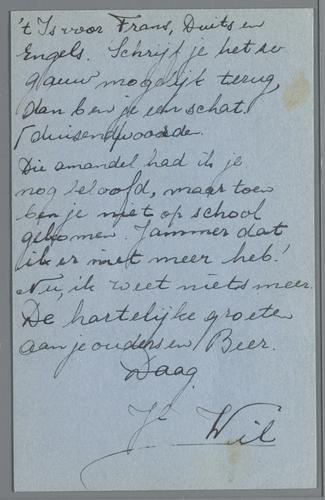 't Is voor Frans, Duits en
Engels. Schrijf je het zo
gauw mogelijk terug,
dan ben je een schat.
Die amandel had ik je
nog beloofd, maar toen
ben je niet op school
gekomen. Jammer dat
ik er niet meer heb!
Nu, ik weet niets meer.
De hartelijke groeten
aan je ouders en Beer.
Daag
Je Wil